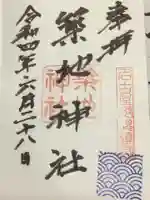 奉拝
築地神社
令和四年六月二十八日
築地
神社